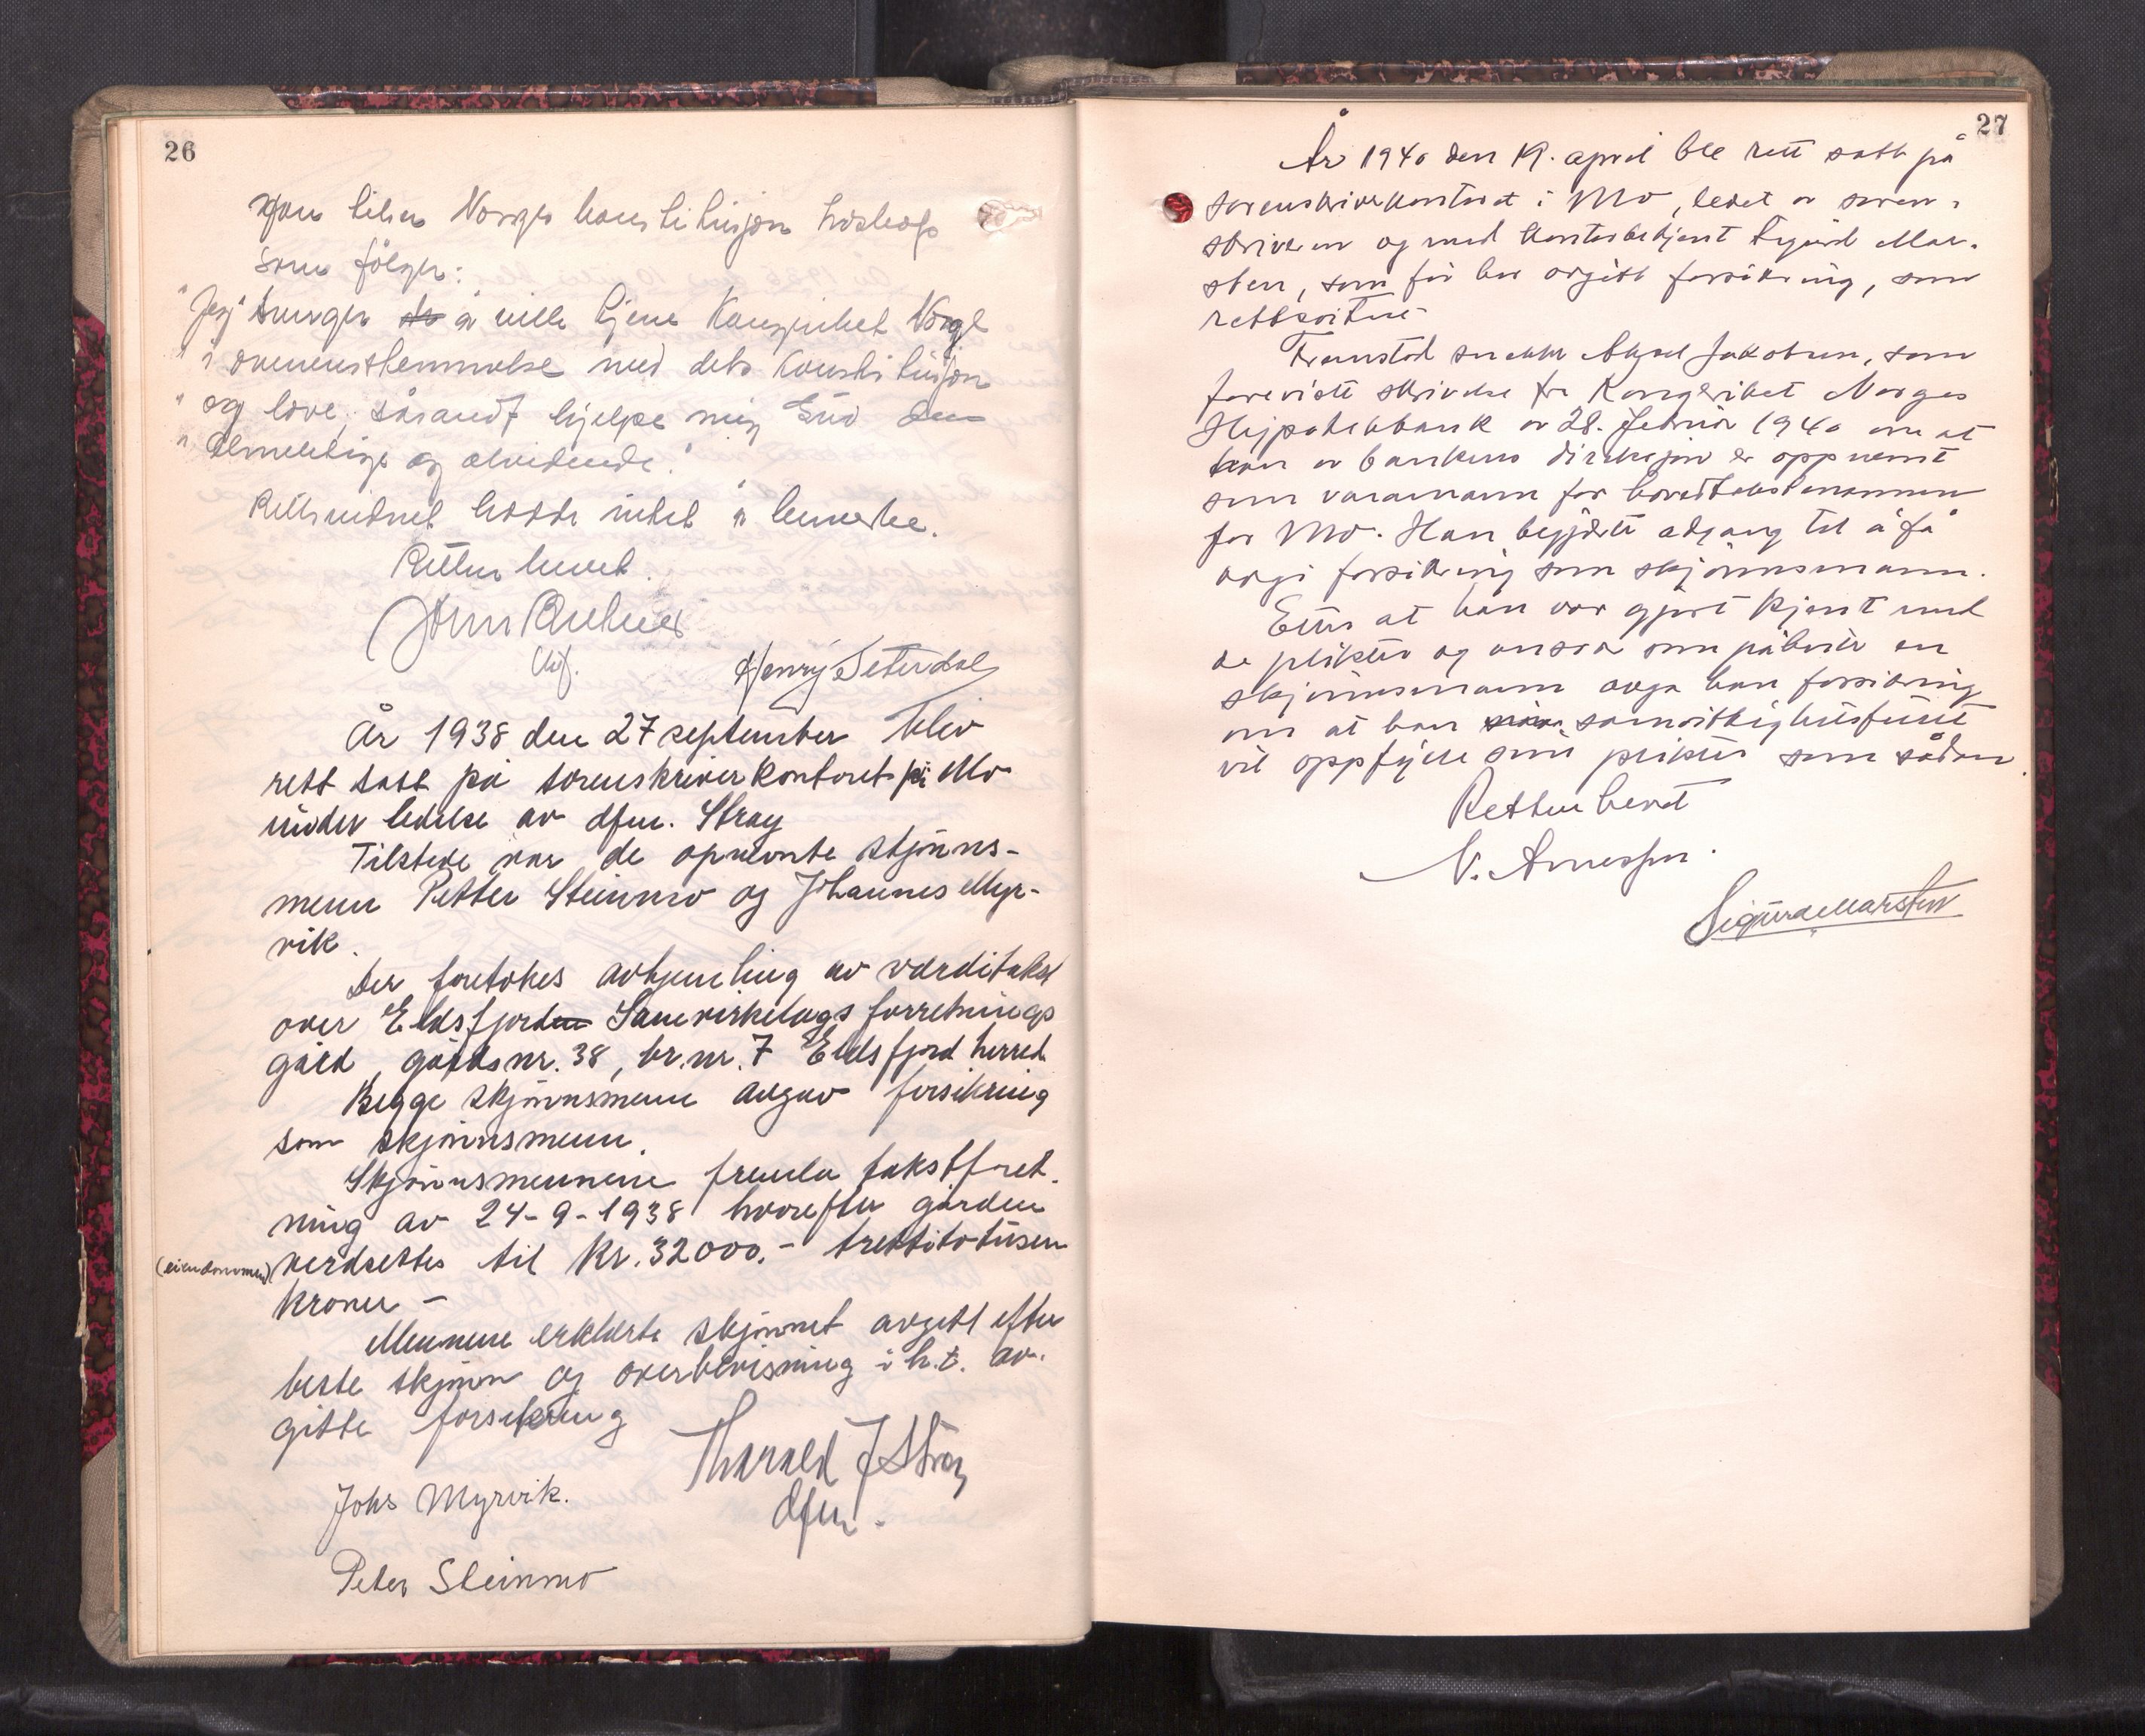 26
som tilsv Norges konstitusjon
som følger:
"Jeg sverger å ville tjene Kongeriket Norge
" i overensstemmelse med dets konstitusjon
" og love, såsandt hjelpe mig Gud den
" Almektige og alvidende."
Rettsvidnet hadde intet å bemerke.
Retten hevet.
Henry Seterdal
År 1938 den 27 september blev
rett satt på sorenskriverkontoret på Mo
under ledelse av dfm. Stray
Tilstede var de opnevnte skjønns-
menn Petter Steinmo og Johannes Myr-
vik.
Der foretokes avhjemling av verditakst
over Eldsfjorden Samvirkelags forretnings
gård, gårdsnr. 38, br.nr. 7 Eidsfjord herred.
Begge skjønnsmenn avgav forsikring
som skjønnsmenn.
Skjønnsmennene fremla takstforret-
ning av 24-9-1938 hvorefter gården
(eiendommen) verdsettes til kr. 32000.- trettitotusen
kroner -
Mennene erklærte skjønnet avgitt efter
beste skjønn og overbevisning i h.t. av-
gitte forsikring
Tharald J Stray
dfm.
Johs Myrvik.
Peter Steinmo
27
År 1940 den 19. april ble rett satt på
sorenskriverkontoret i Mo, ledet av soren-
skriveren og med kontorbetjent Sigurd Mar-
sten, som før har avgitt forsikring, som
rettsvitne.
Framstod snekker Aksel Jakobsen, som
foreviste skrivelse fra Kongeriket Norges
Hypotekbank av 28. februar 1940 om at
han av bankens direksjon er oppnevnt
som varamann for hovedtakstmannen
for Mo. Han begjærte adgang til å få
avgi forsikring som skjønnsmann.
Etter at han var gjort kjent med
de plikter og ansvar som påhviler en
skjønnsmann avga han forsikring
om at han samvittighetsfullt
vil oppfylle sine plikter som sådan.
Retten hevet
N. Arnessen.
Sigurd Marsten